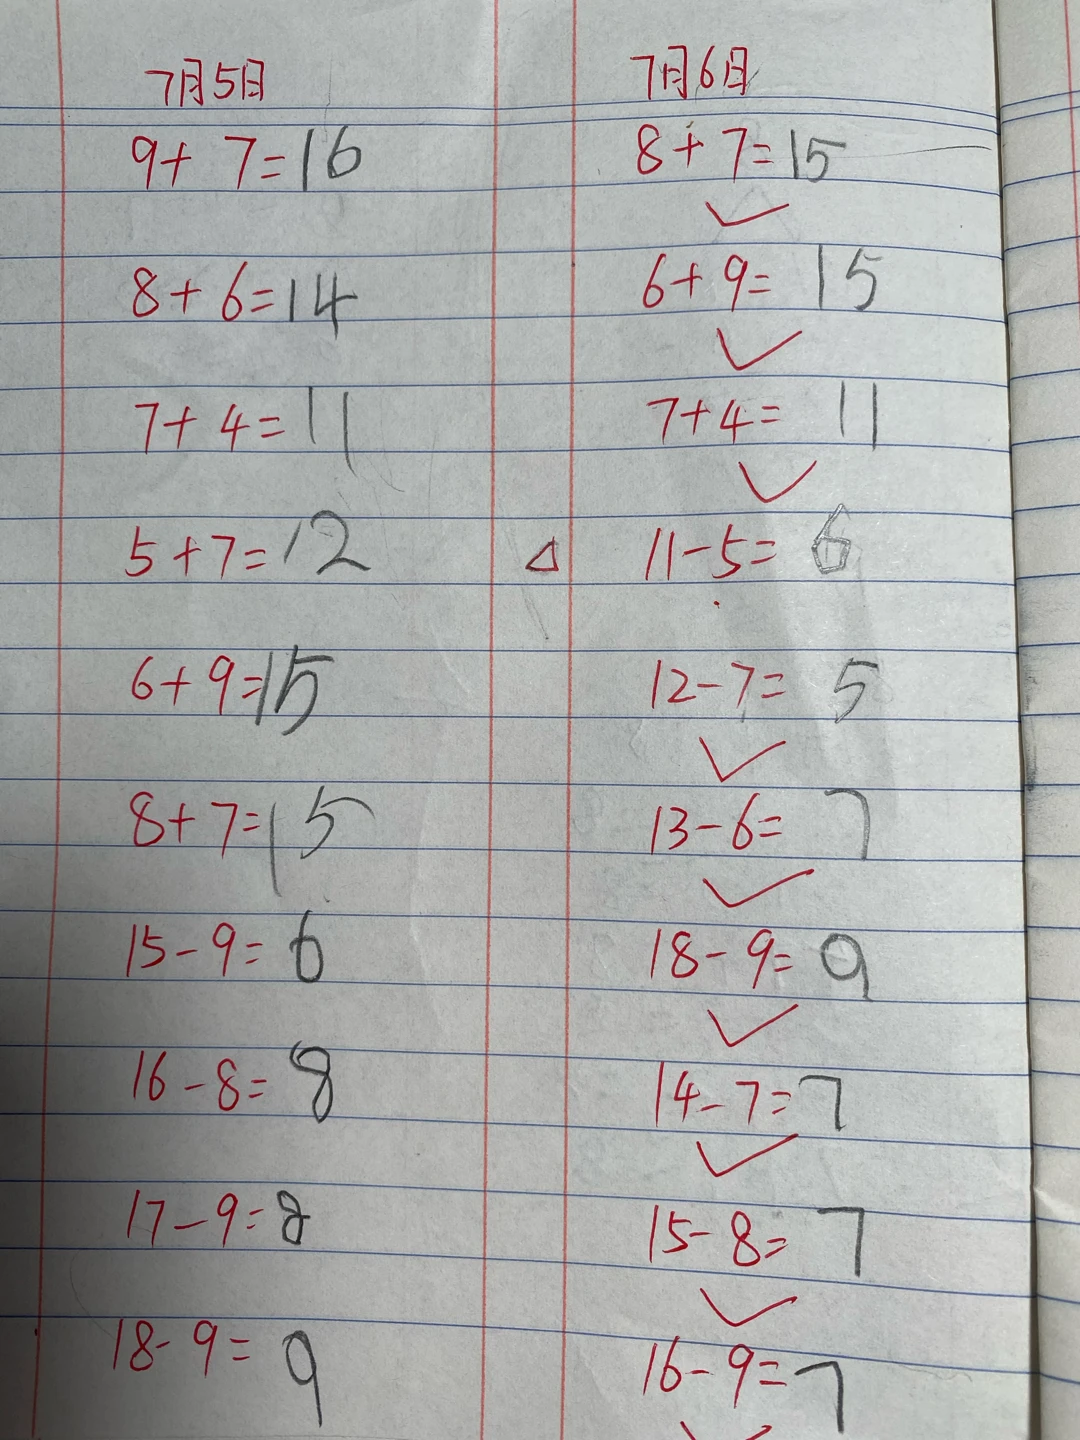 7月5日
9+7=16
8+6=14
7+4=11
5+7=12
6+9=15
8+7=15
15-9=6
16-8=8
17-9=8
18-9=9
7月6日
8+7=15
6+9=15
7+4=11
11-5=6
12-7=5
13-6=7
18-9=9
14-7=7
15-8=7
16-9=7